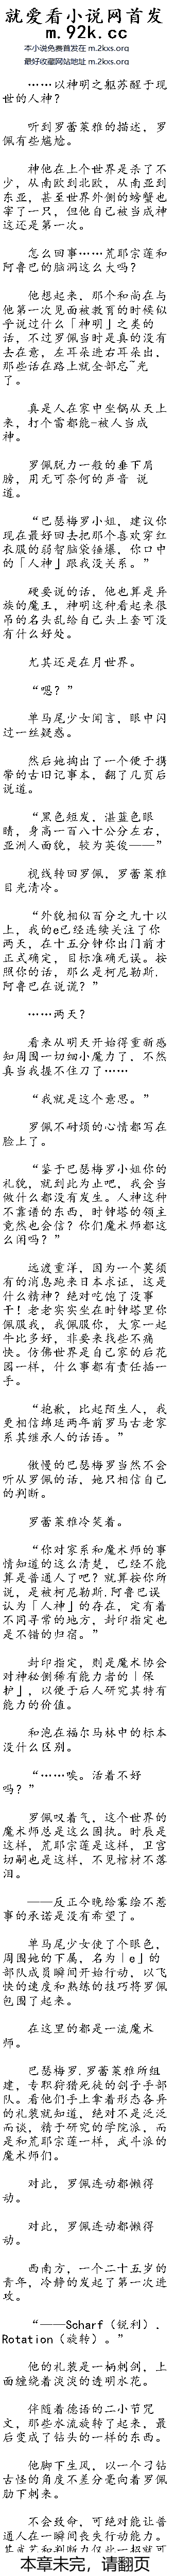 就爱看小说网首发
m.92k.cc
本小说免费首发在 m.2kxs.org
最好收藏网站地址 m.2kxs.org
……以神明之躯苏醒于现
世的人神？
听到罗蕾莱雅的描述，罗
佩有些尴尬。
神他在上个世界是杀了不
少，从南欧到北欧，从南亚到
东亚，甚至世界外侧的螃蟹也
宰了一只，但他自己被当成神
这还是第一次。
怎么回事……荒耶宗莲和
阿鲁巴的脑洞这么大吗？
他想起来，那个和尚在与
他第一次见面被教育的时候似
乎说过什么「神明」之类的
话，不过罗佩当时是真的没有
去在意，左耳朵进右耳朵出，
那些话在路上就全部忘~光
了。
真是人在家中坐锅从天上
来，打个雷都能-被人当成
神。
罗佩脱力一般的垂下肩
膀，用无可奈何的声音 说
道。
“巴瑟梅罗小姐，建议你
现在最好回去把那个喜欢穿红
衣服的弱智脑袋锤爆，你口中
的「人神」跟我没关系。”
硬要说的话，他也算是异
族的魔王，神明这种看起来很
吊的名头乱给自己头上套可没
有什么好处。
尤其还是在月世界。
“嗯？”
单马尾少女闻言，眼中闪
过一丝疑惑。
然后她掏出了一个便于携
带的古旧记事本，翻了几页后
说道。
“黑色短发，湛蓝色眼
睛，身高一百八十公分左右，
亚洲人面貌，较为英俊——”
视线转回罗佩，罗蕾莱雅
目光清冷。
“外貌相似百分之九十以
上，我的e已经连续关注了你
两天，在十五分钟你出门前才
正式确定，目标准确无误。按
照你的话，那么是柯尼勒斯.
阿鲁巴在说谎？”
……两天？
看来从明天开始得重新感
知周围一切细小魔力了，不然
真当我提不住刀了……
“我就是这个意思。”
罗佩不耐烦的心情都写在
脸上了。
“鉴于巴瑟梅罗小姐你的
礼貌，就到此为止吧，我会当
做什么都没有发生。人神这种
不靠谱的东西，时钟塔的领主
竟然也会信？你们魔术师都这
么闲吗？”
远渡重洋，因为一个莫须
有的消息跑来日本求证，这是
什么精神？绝对吃饱了没事
干！老老实实坐在时钟塔里你
佩服我，我佩服你，大家一起
牛比多好，非要来找些不痛
快。仿佛世界是自己家的后花
园一样，什么事都有责任插一
手。
“抱歉，比起陌生人，我
更相信绵延两年前罗马古老家
系其继承人的话语。”
傲慢的巴瑟梅罗当然不会
听从罗佩的话，她只相信自己
的判断。
罗蕾莱雅冷笑着。
“你对家系和魔术师的事
情知道的这么清楚，已经不能
算是普通人了吧？就算按你所
说，是被柯尼勒斯.阿鲁巴误
认为「人神」的存在，定有着
不同寻常的地方，封印指定也
是不错的归宿。”
封印指定，则是魔术协会
对神秘侧稀有能力者的「保
护」，以便于后人研究其特有
能力的价值。
和泡在福尔马林中的标本
没什么区别。
“……唉。活着不好
吗？”
罗佩叹着气，这个世界的
魔术师总是这么固执。时辰是
这样，荒耶宗莲是这样，卫宫
切嗣也是这样，不见棺材不落
泪。
——反正今晚给雾绘不惹
事的承诺是没有希望了。
单马尾少女使了个眼色，
周围她的下属，名为「e」的
部队成员瞬间开始行动，以飞
快的速度和熟练的技巧将罗佩
包围了起来。
在这里的都是一流魔术
师。
巴瑟梅罗.罗蕾莱雅所组
建，专职狩猎死徒的刽子手部
队。看他们手上拿着形态各异
的礼装就知道，绝对不是泛泛
而谈，精于研究的学院派，而
是和荒耶宗莲一样，武斗派的
魔术师们。
对此，罗佩连动都懒得
动。
对此，罗佩连动都懒得
动。
西南方，一个二十五岁的
青年，冷静的发起了第一次进
攻。
“——Scharf（锐利）.
Rotation（旋转）。”
他的礼装是一柄刺剑，上
面缠绕着淡淡的透明水花。
伴随着德语的二小节咒
文，那些水流旋转了起来，最
后变成了钻头的一样的东西。
他脚下生风，以一个刁钻
古怪的角度不差分毫向着罗佩
肋下刺来。
不会致命，可绝对能让普
通人在一瞬间丧失行动能力。
本章未完，请翻页